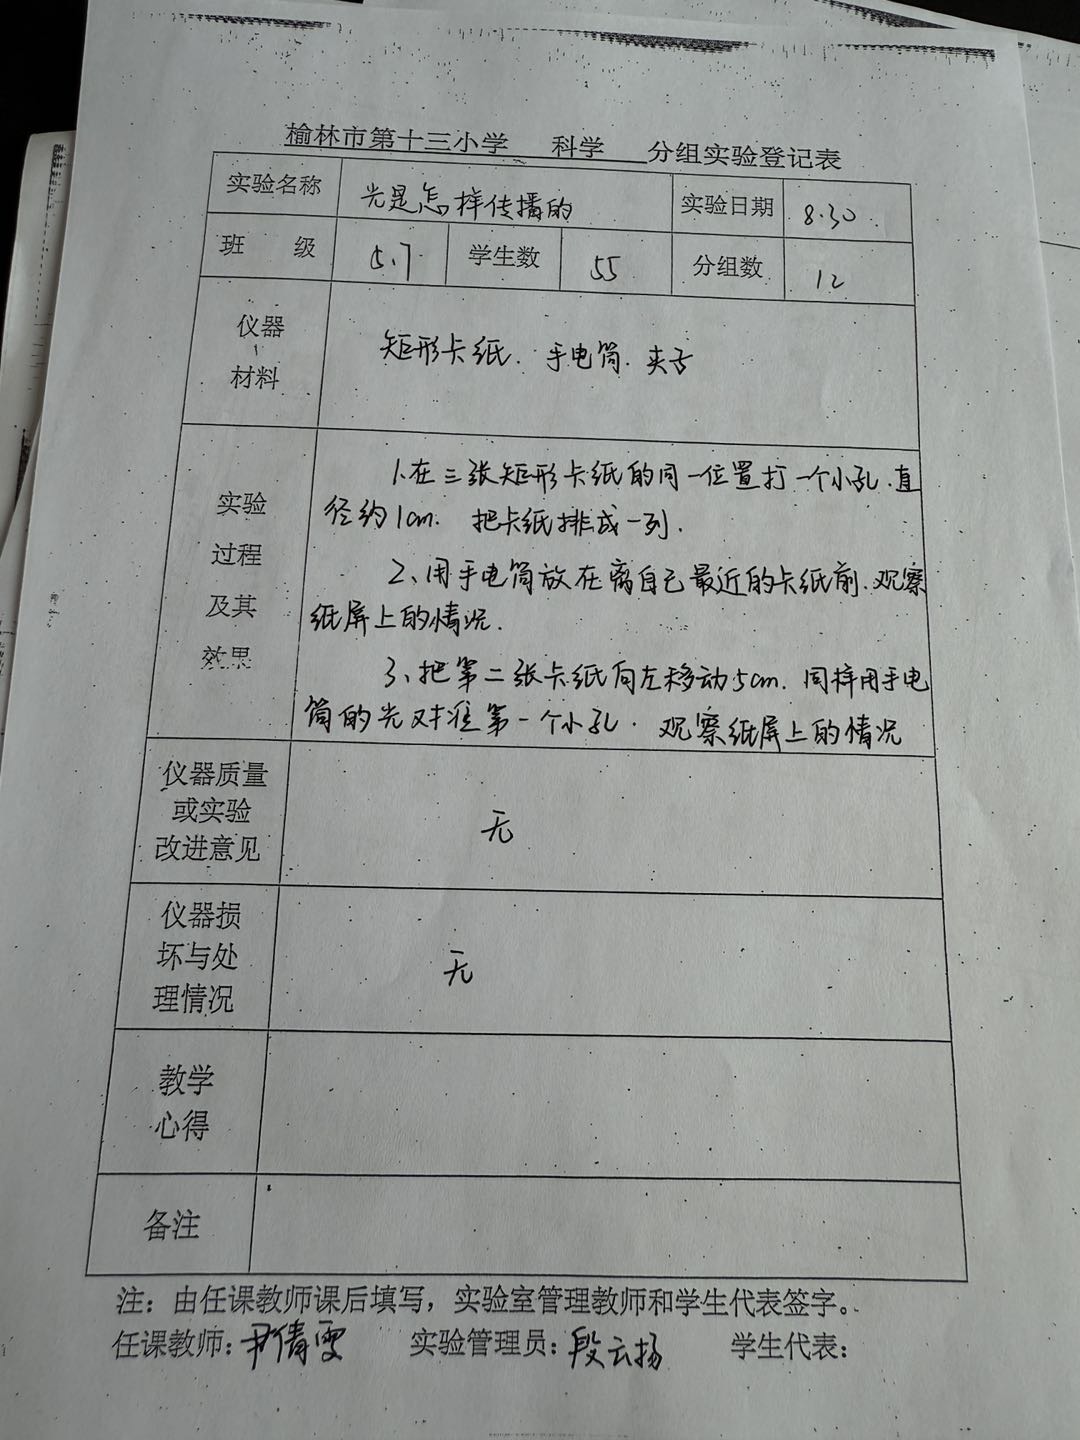 榆林市第十三小学 科学 分组实验登记表
实验名称 光是怎样传播的 实验日期 8.30
班 级 5.7 学生数 55 分组数 12
仪器
、
材料
矩形卡纸. 手电筒. 夹子
实验
过程
及其
效果
1.在三张矩形卡纸的同一位置打一个小孔.直
径约1cm. 把卡纸排成一列.
2、用手电筒放在离自己最近的卡纸前.观察
纸屏上的情况.
3、把第二张卡纸向左移动5cm. 同样用手电
筒的光对准第一个小孔. 观察纸屏上的情况
仪器质量
或实验
改进意见
无
仪器损
坏与处
理情况
无
教学
心得
备注
注：由任课教师课后填写，实验室管理教师和学生代表签字。
任课教师：尹倩雯 实验管理员：段云扬 学生代表：